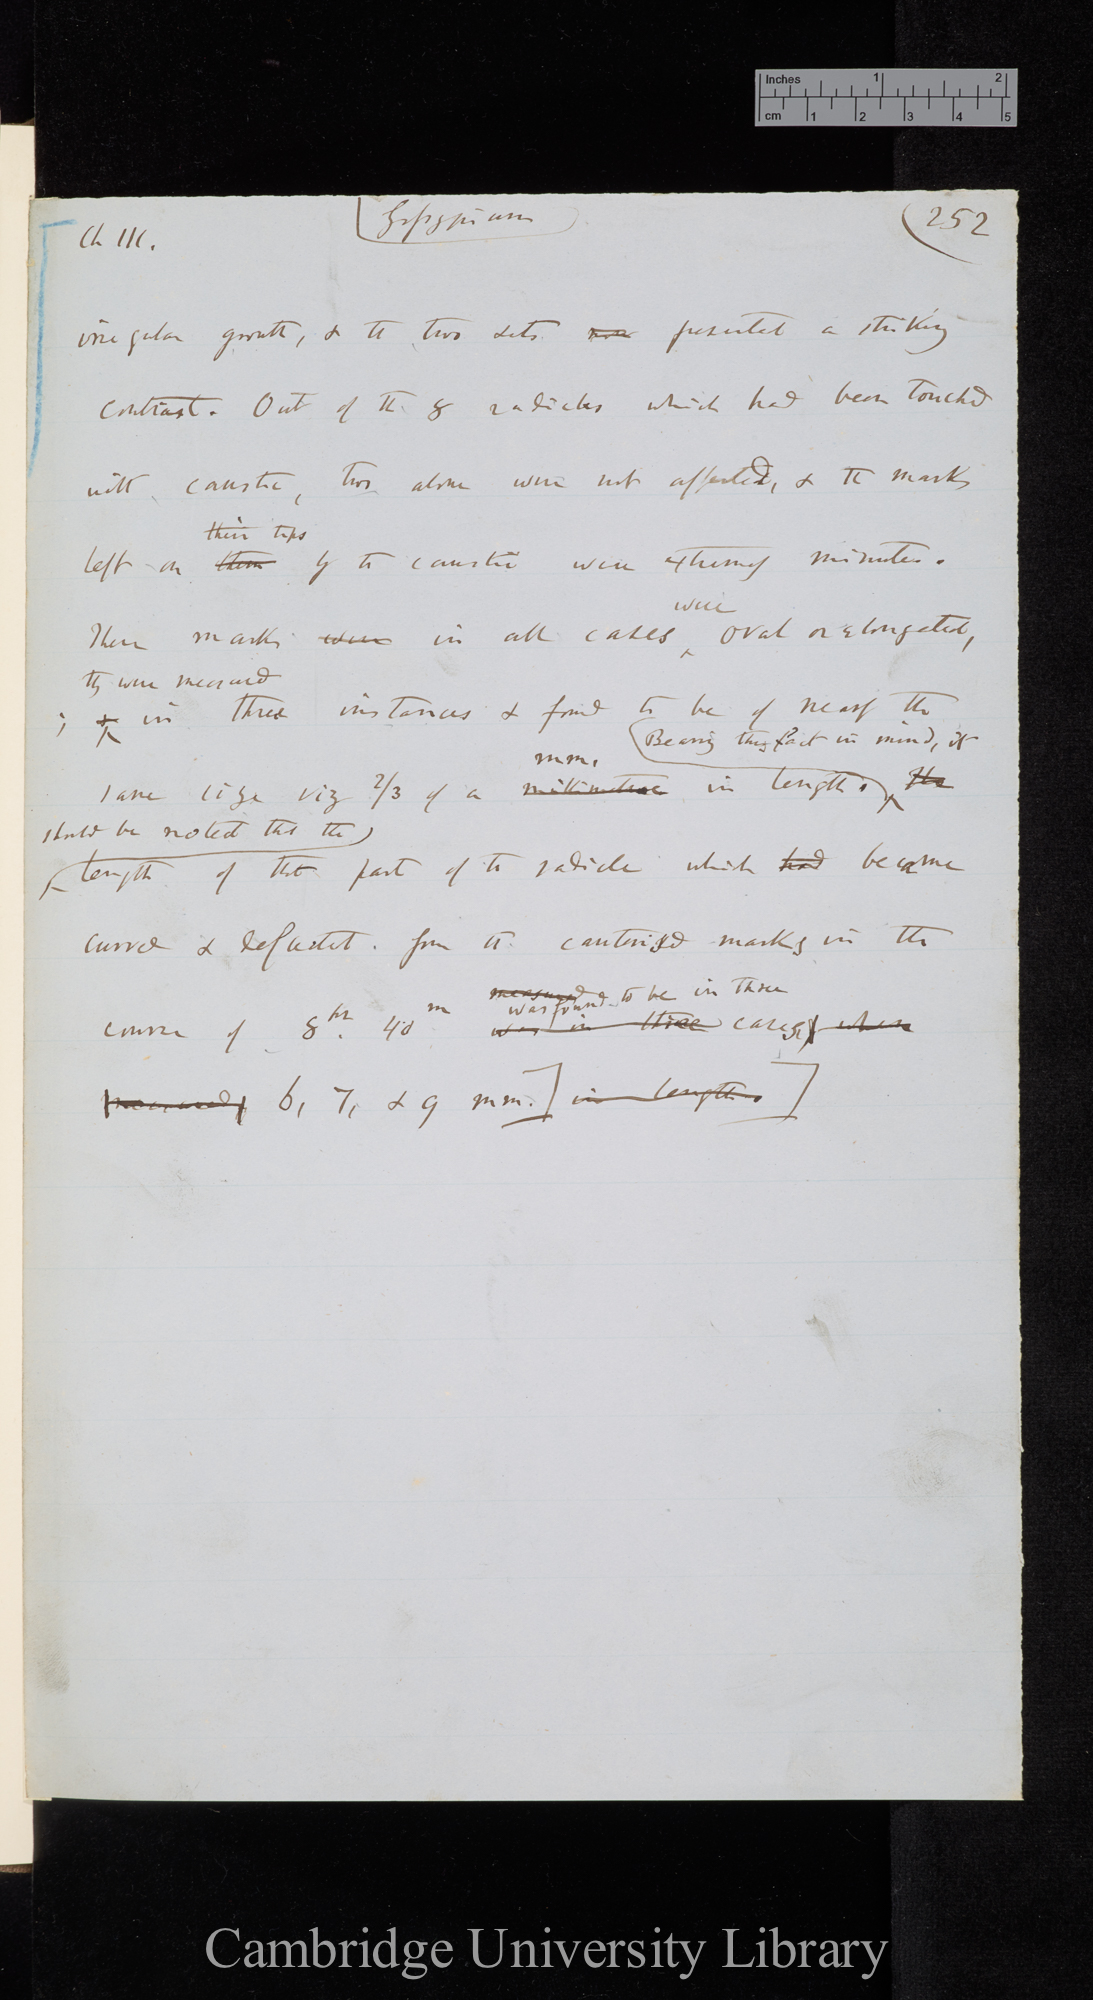 Inches 1 2
cm 1 2 3 4 5
Ch III.
Gossypium
252
irregular growth, & the two sets presented a striking
contrast. Out of the 8 radicles which had been touched
with caustic, two alone were not affected, & the marks
their tips
left on them by the caustic were extremely minute.
were
These marks were in all cases oval or elongated,
they were measured
; & in three instances & found to be of nearly the
Bearing this fact in mind, it
mm.
same size viz 2/3 of a millimetre in length. The
should be noted that the
length of that part of the radicle which had become
curved & deflected from the cauterised marks in the
measured
was found to be in three
course of 8 hr. 40 m was in three cases, when
measured, 6, 7, & 9 mm.] in length.]
Cambridge University Library